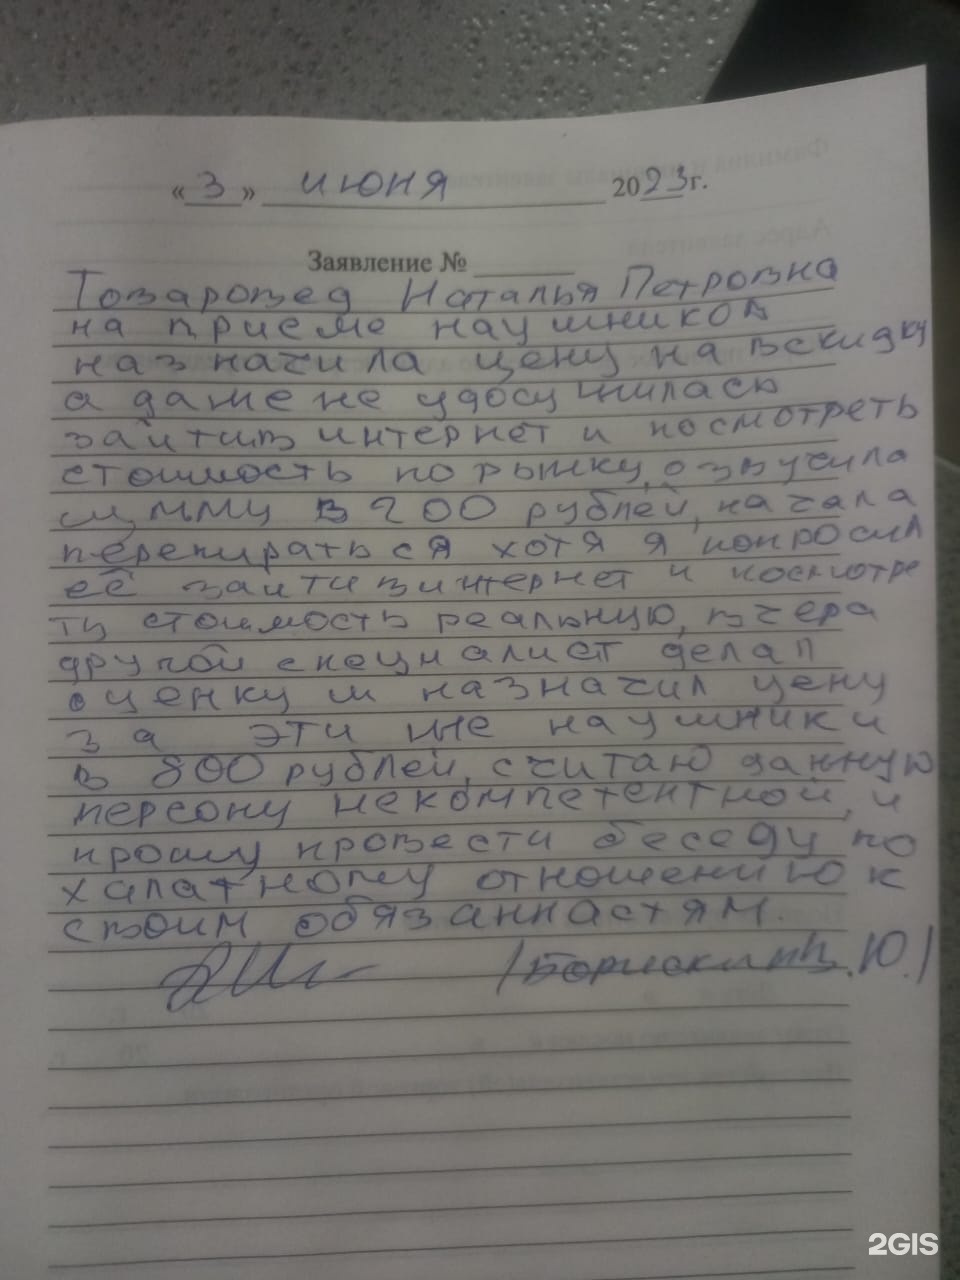 «3» июня 2023г.
Заявление №
Товаровед Наталья Петровна
на приеме наушников
назначила цену на вскидку
а даже не удосужилась
зайти в интернет и посмотреть
стоимость по рынку, озвучила
сумму в 200 рублей, начала
перепираться хотя я попросил
её зайти в интернет и посмотре
ть стоимость реальную, вчера
другой специалист делал
оценку и назначил цену
за эти же наушники
в 800 рублей, считаю данную
персону некомпетентной, и
прошу провести беседу по
халатному отношению к
своим обязаннастям.
/Борискин В.Ю./
2GIS